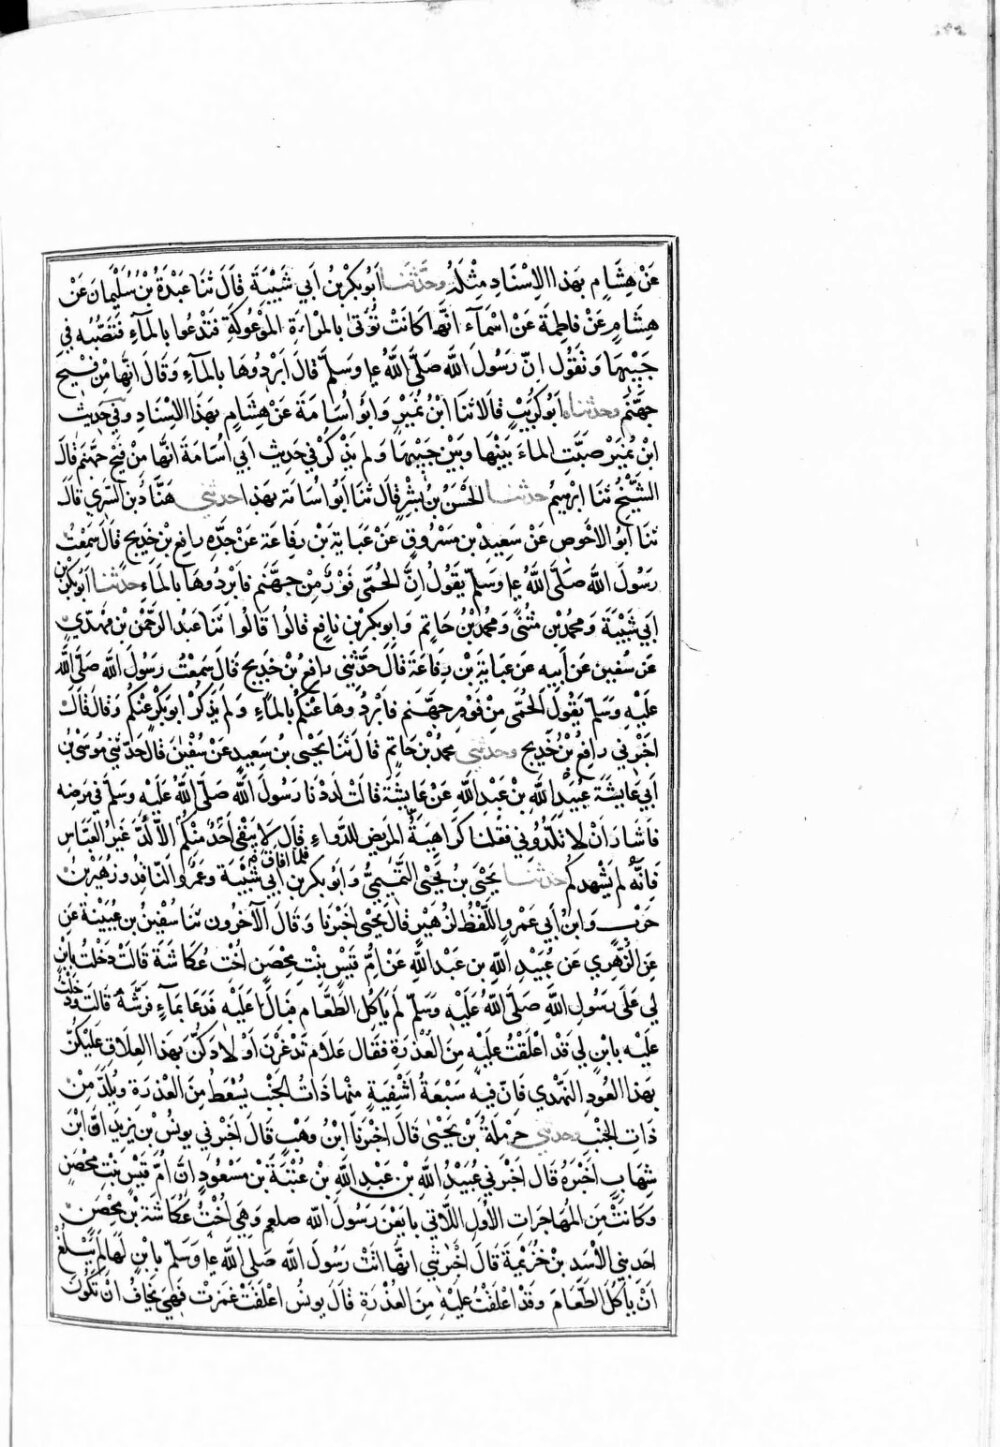 عَنْ هِشَامٍ بِهَذَا الْاِسْنَادِ مِثْلَهُ وحَدَّثَنَا اَبُو بَكْرِ بْنُ اَبِي شَيْبَةَ قَالَ ثَنَا عَبْدَةُ بْنُ سُلَيْمَانَ عَنْ
هِشَامٍ عَنْ فَاطِمَةَ عَنْ اَسْمَآءَ اَنَّهَا كَانَتْ تُؤْتَى بِالْمَرْاَةِ الْمَوْعُوكَةِ فَتَدْعُوا بِالْمَآءِ فَتَصُبُّهُ فِي
جَيْبِهَا وَتَقُولُ اِنَّ رَسُولَ اللَّهِ صَلَّى اللَّهُ عليه وَسَلَّم قَالَ اَبْرِدُوهَا بِالْمَآءِ وَقَالَ اِنَّهَا مِنْ فَيْحِ
جَهَنَّمَ وحدثناه اَبُو كُرَيْبٍ قَالَ ثَنَا ابْنُ نُمَيْرٍ وَاَبُو اُسَامَةَ عَنْ هِشَامٍ بِهَذَا الْاِسْنَادِ وَفِي حَدِيثِ
ابْنِ نُمَيْرٍ صَبَّتِ الْمَاءَ بَيْنَهَا وَبَيْنَ جَيْبِهَا وَلَمْ يَذْكُرْ فِي حَدِيثِ اَبِي اُسَامَةَ اَنَّهَا مِنْ فَيْحِ جَهَنَّمَ قَالَ
الشَّيْخُ ثَنَا اِبْرهِيمُ حدثنا الْحَسَنُ بْنُ بِشْرٍ قَالَ ثَنَا اَبُو اُسَامَةَ بِهَذَا حدثني هَنَّادُ بْنُ السَّرِيِّ قَالَ
ثَنَا اَبُو الْاَحْوَصِ عَنْ سَعِيدِ بْنِ مَسْرُوقٍ عَنْ عَبَايَةَ بْنِ رِفَاعَةَ عَنْ جَدِّهِ رَافِعِ بْنِ خَدِيجٍ قَالَ سَمِعْتُ
رَسُولَ اللَّهِ صَلَّى اللَّهُ عليه وَسَلَّم يَقُولُ اِنَّ الْحُمَّى فَوْرٌ مِنْ جَهَنَّمَ فَابْرُدُوهَا بِالْمَاءِ حدَّثنا اَبُو بَكْرِ بْنُ
اَبِي شَيْبَةَ وَمُحَمَّدُ بْنُ مُثَنًّى وَمُحَمَّدُ بْنُ حَاتِمٍ وَاَبُو بَكْرِ بْنُ نَافِعٍ قَالُوا قَالُوا ثَنَا عَبْدُ الرَّحْمَنِ بْنُ مَهْدِيٍّ
عَنْ سُفْيَنَ عَنْ اَبِيهِ عَنْ عَبَايَةَ بْنِ رِفَاعَةَ قَالَ حَدَّثَنِي رَافِعُ بْنُ خَدِيجٍ قَالَ سَمِعْتُ رَسُولَ اللَّهِ صَلَّى اللَّهُ
عَلَيْهِ وَسَلَّم يَقُولُ الْحُمَّى مِنْ فَوْرِ جَهَنَّمَ فَابْرُدُوهَا عَنْكُمْ بِالْمَآءِ وَلَمْ يَذْكُرْ اَبُو بَكْرٍ عَنْكُمْ وَقَالَ قَالَ
اَخْبَرَنِي رَافِعُ بْنُ خَدِيجٍ وحدثني مُحَمَّدُ بْنُ حَاتِمٍ قَالَ ثَنَا يَحْيَى بْنُ سَعِيدٍ عَنْ سُفْيَنَ قَالَ حَدَّثَنِي مُوسَى بْنُ
اَبِي عَايِشَةَ عَنْ عُبَيْدِ اللَّهِ بْنِ عَبْدِ اللَّهِ عَنْ عَايِشَةَ قَالَتْ لَدَدْنَا رَسُولَ اللَّهِ صَلَّى اللَّهُ عَلَيْهِ وَسَلَّمَ فِي مَرَضِهِ
فَاَشَارَ اَنْ لَا تَلُدُّونِي فَقُلْنَا كَرَاهِيَةُ الْمَرِيضِ لِلدَّوَاءِ قَالَ لَا يَبْقَى اَحَدٌ مِنْكُمْ اِلَّا لُدَّ غَيْرُ الْعَبَّاسِ
فلما افاق
فَاِنَّهُ لَمْ يَشْهَدْكُمْ حدثنا يَحْيَى بْنُ يَحْيَى التَّمِيمِيُّ وَاَبُو بَكْرِ بْنُ اَبِي شَيْبَةَ وَعَمْرٌو النَّاقِدُ وَزُهَيْرُ بْنُ
حَرْبٍ وَابْنُ اَبِي عُمَرَ وَاللَّفْظُ لِزُهَيْرٍ قَالَ يَحْيَى اَخْبَرَنَا وَقَالَ الْآخَرُونَ ثَنَا سُفْيَنُ بْنُ عُيَيْنَةَ عَنِ
عَنِ الزُّهْرِيِّ عَنْ عُبَيْدِ اللَّهِ بْنِ عَبْدِ اللَّهِ عَنْ اُمِّ قَيْسٍ بِنْتِ مِحْصَنٍ اُخْتِ عُكَّاشَةَ قَالَتْ دَخَلْتُ بِابْنٍ
لِي عَلَى رَسُولِ اللَّهِ صَلَّى اللَّهُ عَلَيْهِ وَسَلَّم لَمْ يَاْكُلِ الطَّعَامَ فَبَالَ عَلَيْهِ فَدَعَا بِمَآءٍ فَرَشَّهُ قَالَتْ وَدَخَلْتُ
عَلَيْهِ بِابْنٍ لِي قَدْ اَعْلَقْتُ عَلَيْهِ مِنَ الْعُذْرَةِ فَقَالَ عَلَامَ تَدْغَرْنَ اَوْلَادَكُنَّ بِهَذَا الْعِلَاقِ عَلَيْكُنَّ
بِهَذَا الْعُودِ الْهِنْدِيِّ فَاِنَّ فِيهِ سَبْعَةَ اَشْفِيَةٍ مِنْهَا ذَاتُ الْجَنْبِ يُسْعَطُ مِنَ الْعُذْرَةِ وَيُلَدُّ مِنْ
ذَاتِ الْجَنْبِ وحدثني حَرْمَلَةُ بْنُ يَحْيَى قَالَ اَخْبَرَنَا ابْنُ وَهْبٍ قَالَ اَخْبَرَنِي يُونُسُ بْنُ يَزِيدَ اَنَّ ابْنَ
شِهَابٍ اَخْبَرَهُ قَالَ اَخْبَرَنِي عُبَيْدُ اللَّهِ بْنُ عَبْدِ اللَّهِ بْنِ عُتْبَةَ بْنِ مَسْعُودٍ اَنَّ اُمَّ قَيْسٍ بِنْتَ مِحْصَنٍ
وَكَانَتْ مِنَ الْمُهَاجِرَاتِ الْاُوَلِ اللَّاتِي بَايَعْنَ رَسُولَ اللَّهِ صلعم وَهِيَ اُخْتُ عُكَّاشَةَ بْنِ مِحْصَنٍ
اَحَدِ بَنِي الْاَسَدِ بْنِ خُزَيْمَةَ قَالَ اَخْبَرَتْنِي اَنَّهَا اَتَتْ رَسُولَ اللَّهِ صَلَّى اللَّهُ عليه وَسَلَّم بِابْنٍ لَهَا لَمْ يَبْلُغْ
اَنْ يَاْكُلَ الطَّعَامَ وَقَدْ اَعْلَقَتْ عَلَيْهِ مِنَ الْعُذْرَةِ قَالَ يُونُسُ اَعْلَقَتْ غَمَزَتْ فَهِيَ تَخَافُ اَنْ تَكُونَ